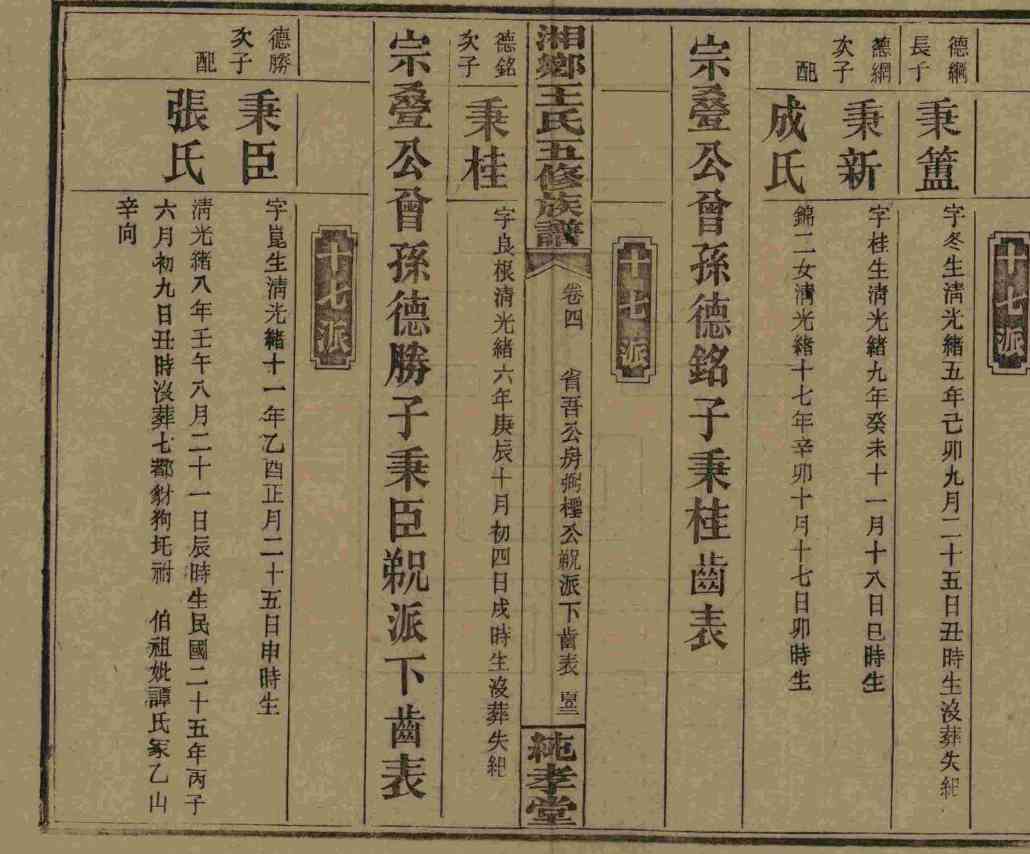 十七派
德綱長子
秉簠
字冬生清光緒五年己卯九月二十五日丑時生沒葬失紀
德綱次子
秉新
字桂生清光緒九年癸未十一月十八日巳時生
配
成氏
錦二女清光緒十七年辛卯十月十七日卯時生
宗叠公曾孫德銘子秉桂齒表
十七派
湘鄉王氏五修族譜
卷四
省吾公房
公覜派下齒表
純孝堂
德銘次子
秉桂
字良根清光緒六年庚辰十月初四日戌時生沒葬失紀
宗叠公曾孫德勝子秉臣覜派下齒表
十七派
德勝次子
秉臣
字崑生清光緒十一年乙酉正月二十五日申時生
配
張氏
清光緒八年壬午八月二十一日辰時生民國二十五年丙子
六月初九日丑時沒葬七都豺狗坨祔 伯祖妣譚氏冢乙山
辛向